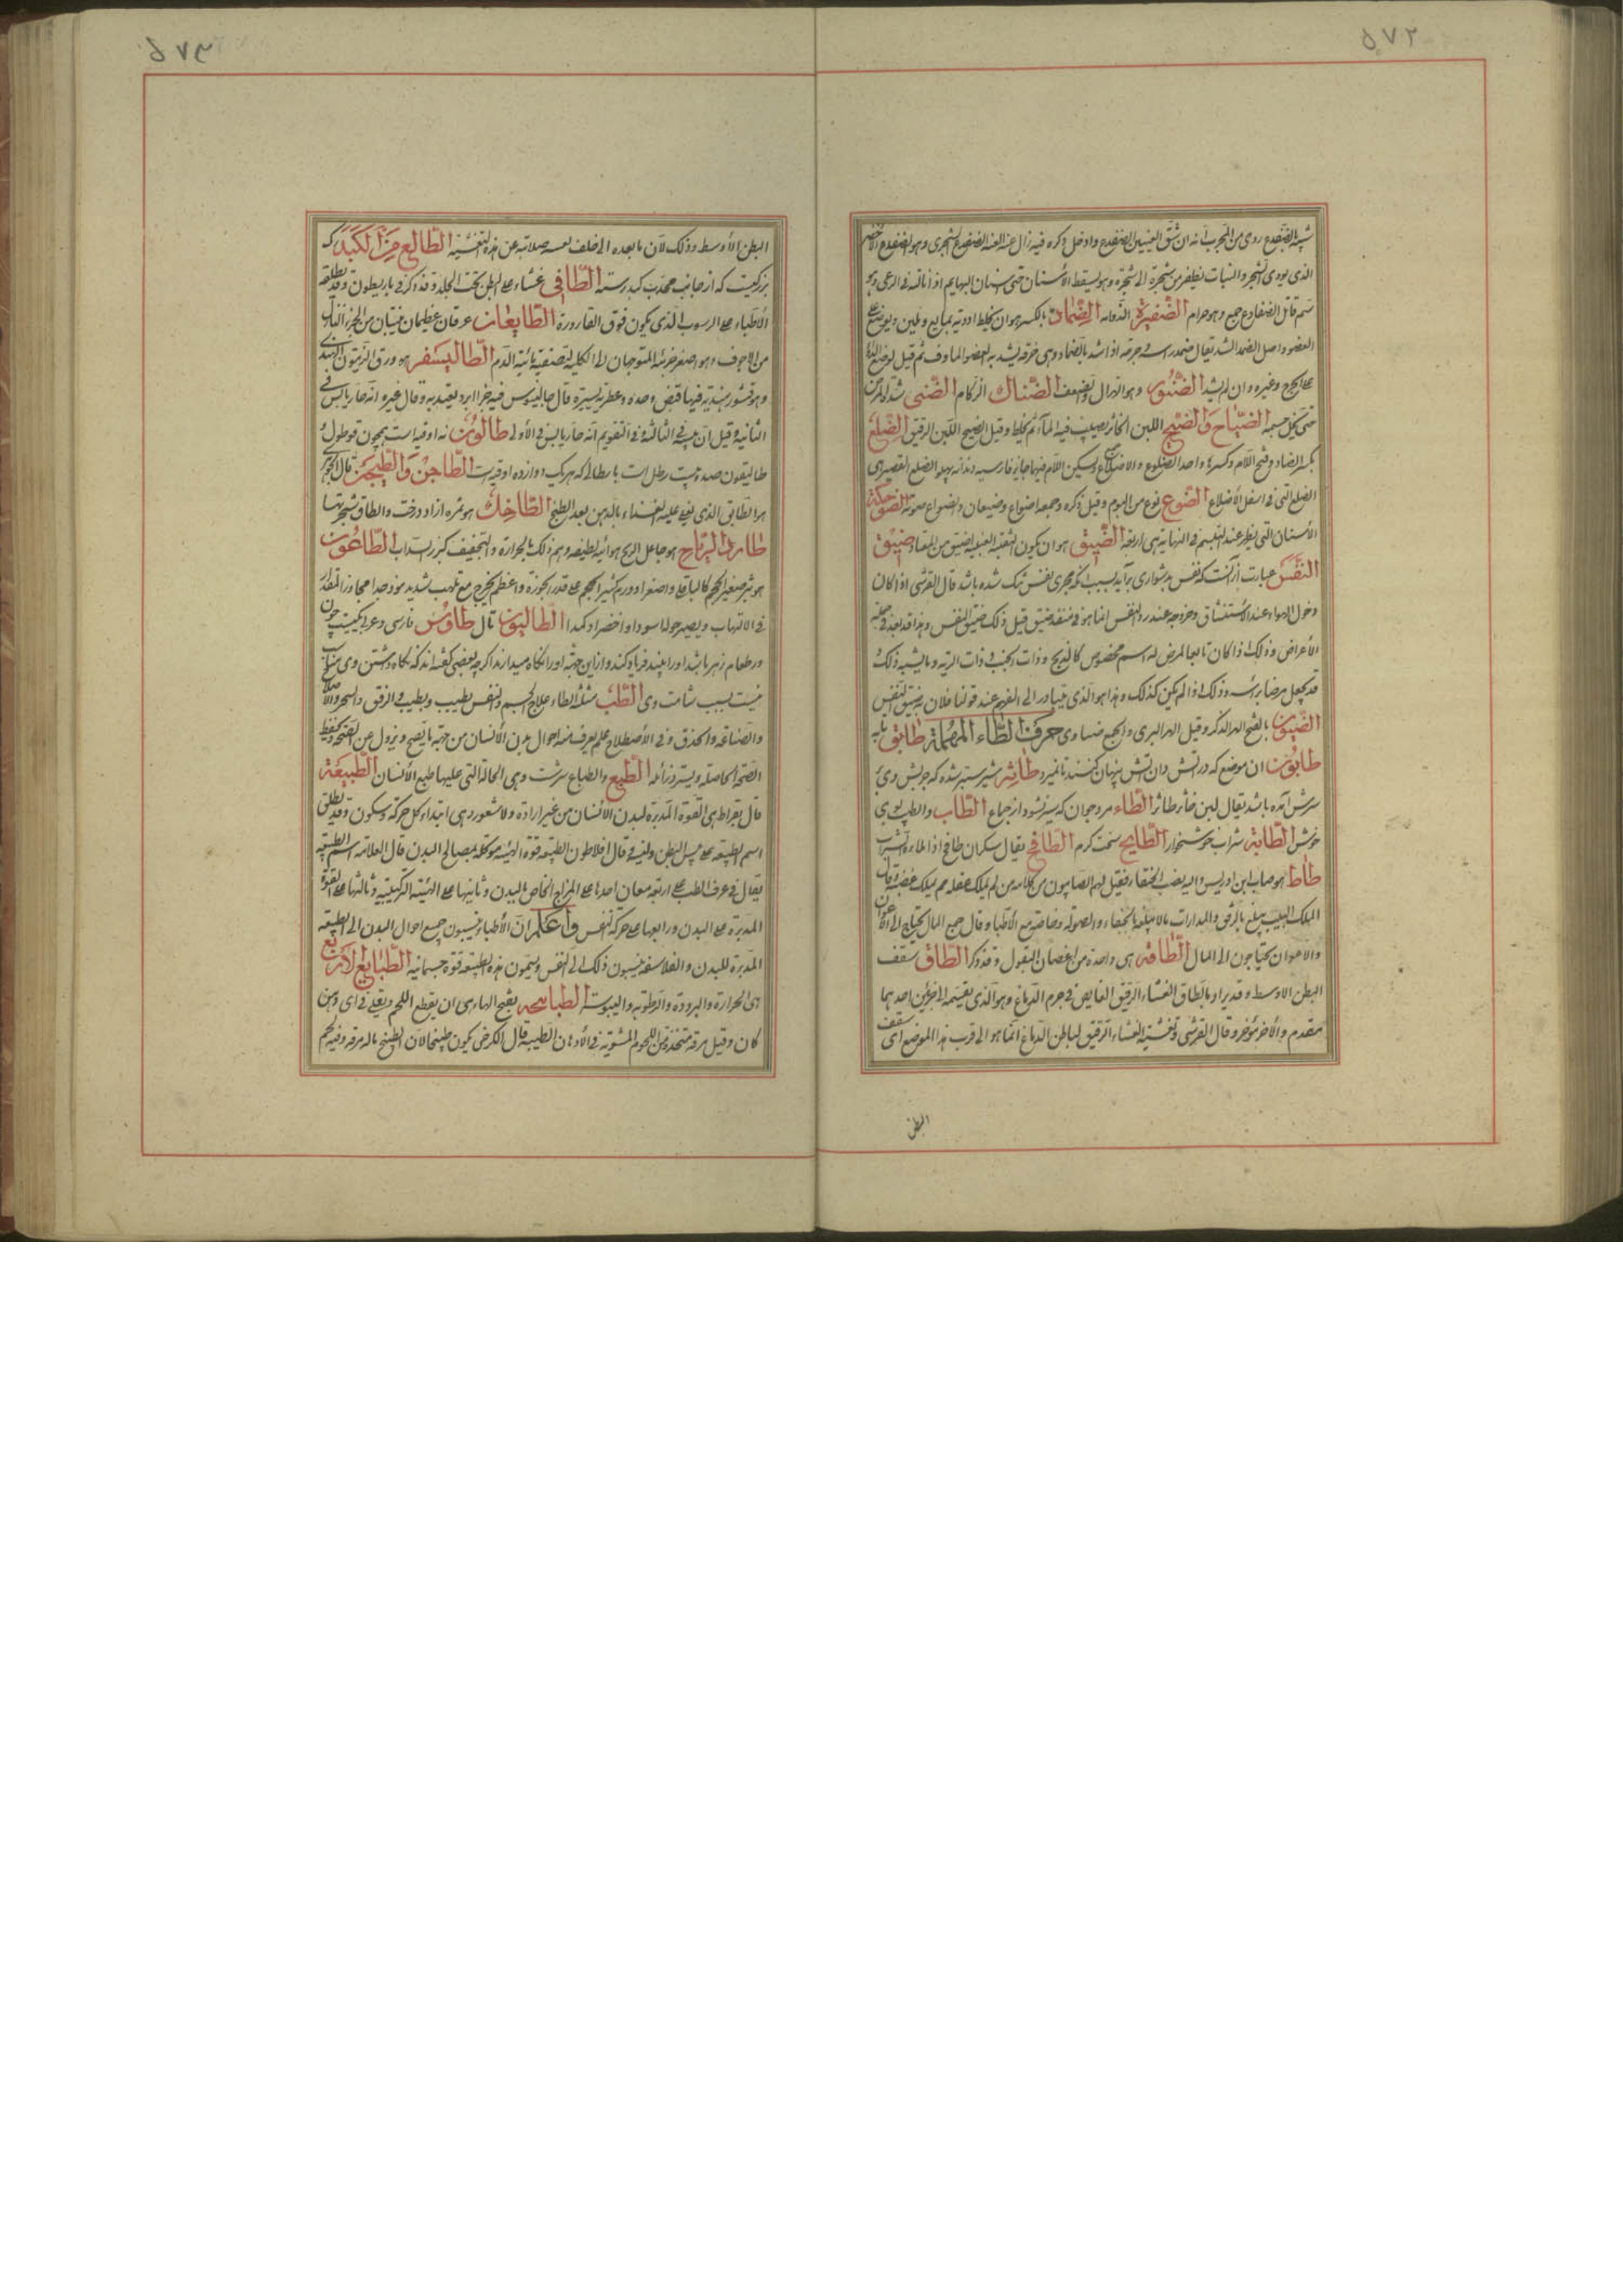 ٥٧٢
شبيه بالضفدع روى من المجرب انه ان شق العينين الضفدع وادخل ذكره فيه زال عنه العنة الضفدع الشجرى وهو الضفدع الأخضر
الذى يودى الشجر والنبات يطفر من شجرة الى شجرة وهو يسقط الأسنان حتى اسنان البهايم اذا نالته فى الرعى وهو
سم قاتل الضفادع جميع وهو حرام الضفيرة الذوابة الضماد بالكسر هو ان يخلط ادوية بمايع ويلين ويوضع على
العضو واصل الضمد الشد يقال ضمد رأسه وجرحه اذا شده بالضماد وهى خرقة يشد به العضو الماوف ثم قيل لوضع الدواء
على الجرح وغيره وان لم يشد الضنون وهو الهزال والضعف الضناك الزكام الضنى شدة المرض
حتى نحل جسمه الضياح والضيح اللبن الخاثر يصب فيه الماء ثم يخلط وقيل الضيح اللبن الرقيق الضلع
بكسر الضاد وفتح اللام وكسرها واحد الضلوع والاضلاع وتسكين اللام فيها جايز فارسيه دنده پهلو الضلع القصيرى
الضلع التى فى اسفل الأضلاع الضوع نوع من البوم وقيل ذكره وجمعه اضواع وضيعان والضواع صوته الضوحكة
الأسنان التى يظهر عند التبسم فى النهاية هى اربعة الضيق هو ان يكون الثقبة العنبية اضيق من المعتاد ضيق
النفس عبارت از آنست كه نفس بدشوارى برآيد بسبب آنكه مجرى نفس تنگ شده باشد قال القرشى اذا كان
دخول الهواء عند الاستنشاق وخروجه عند رد النفس انما هو فى منفذ ضيق قيل ذلك ضيق النفس وهذا قد يعد فى جملة
الأعراض وذلك اذا كان تابعا لمرض له اسم مخصوص كالذبحة وذات الجنب وذات الرية وما يشبه ذلك
قد يجعل مرضا برأسه وذلك اذا لم يكن كذلك وهذا هو الذى يتبادر الى الفهم عند قولنا فلان به ضيق النفس
الضيون بالفتح الهر الذكر وقيل الهر البرى والجمع ضياون حرف الطاء المهملة طابق تابه
طابون ان موضع كه در اتش دان اتش پنهان كنند تا نميرد طاثر شير ستبر شده كه چربش وى بر
سرش آمده باشد يقال لبن خاثر طاثر الطاء مرد جوان كه سير نشود از جماع الطاب والطيب بوى
خوش الطابة شراب خوشخوار الطابخ سخت گرم الطافح يقال سكران طافح اذا ملأه الشراب
طاط هو صاب ابن ادريس واليه يعرب الحنفاء فقيل لهم الصابون من كلامه من لم يملك عقله لم يملك غضبه وقال
الملك اللبيب يبلغ بالرفق والمدارات ما لا يبلغه بالجفاء والصولة وخاصة مع الأطباء وقال جمع المال يحتاج الى الأعوان
والاعوان يحتاجون الى المال الطاقة هى واحدة من اغصان البقول وقد ذكر الطاق سقف
البطن الاوسط وقد يراد بالطاق الغشاء الرقيق الغايص فى جرم الدماغ وهو الذى يقسمه الى جزئين احدهما
مقدم والأخر مؤخر وقال القرشى وتغشية الغشاء الرقيق لباطن الدماغ انما هو الى قرب هذا الموضع اى سقف
البطن
٥٧٣
البطن الأوسط وذلك لان ما بعده الى خلف لعسه صلابته عن هذه التغشية الطالع من الكبد كه
بزرگيست كه از جانب محدب كبد رسته الطافى غشاء على البطن تحت الجلد وقد ذكر فى باريطون وقد يطلقه
الأطباء على الرسوب الذى يكون فوق القارورة الطايعان عرقان عظيمان ينبتان من الجزء النازل
من الاجوف وهو اصغر جزئيه المتوجهان الى الكلية لتصفية مائية الدم الطاليسفر هو ورق الزيتون الهندى
وهو قشور هندية فيها قبض وحدة وعطرية يسيرة قال جالينوس فيه جزء ابرد يعتد به وقال غيره انه حار يابس فى
الثانية وقيل ان يبسه فى الثالثة وفى التقويم انه حار يابس فى الأولى طالوس نه اوقيه است بهجون قوطولى
طاليقون صد و بيست رطل است بارطالى كه هر يك دوازده اوقيه است الطاجن والطيجن قال الجوهرى
هو الطابق الذى يغلى عليه الغذاء بالدهن بعد الطبخ الطاخك هو ثمره ازاد درخت والطاق شجرتها
طارد الرياح هو جاعل الريح هوائيه لطيفه وهم ذلك بالحرارة والتجفيف كبزر السداب الطاعون
هو بثر صغير الحجم كالباقلا واصغر او ورم كثير الحجم على قدر الجوزة واعظم يخرج مع تلهب شديد موذ جدا مجاوز المقدار
فى الالتهاب ويصير حوله اسود او اخضر او كمدا الطاليون تال طاوس فارسى وعربى يكيست چون
در طعام زهر باشد او را ببيند فرياد كند و از اين جهة او را نگاه ميدارند اگرچه بعضى گفته اند كه نگاه داشتن وى مناسب
نيست بسبب شامت وى الطب مثلث الطاء علاج الجسم والنفس يطب ويطب والرفق والسحر والاصلاح
والصناعة والحذق وفى الأصطلاح علم يعرف منه احوال بدن الأنسان من جهة ما يصح ويزول عن الصحة ليحفظ
الصحة الحاصلة ويسترد زايله الطبع والطباع سرشت وهى الحالة التى عليها طبع الأنسان الطبيعة
قال بقراط هى القوة المدبرة لبدن الأنسان من غير ارادة ولا شعور وهى ابتداء كل حركة وسكون وقد يطلق
اسم الطبيعة على سيل البطن ولينه وقال افلاطون الطبيعة قوة الهية موكلة بمصالح البدن قال العلامة اسم الطبيعة
يقال فى عرف الطب على اربعة معان احدها على المزاج الخاص بالبدن وثانيها على الهيئة التركيبية وثالثها على القوة
المدبرة على البدن ورابعها على حركة النفس واعلم ان الأطباء ينسبون جميع احوال البدن الى الطبيعة
المدبرة للبدن والفلاسفة ينسبون ذلك الى النفس ويسمون هذه الطبيعة قوة جسمانية الطبايع الاربع
هى الحرارة والبرودة والرطوبة واليبوسة الطباهجه بفتح الهاء هى ان يقطع اللحم ويقلى فى اى دهن
كان وقيل مرقة متخذة من اللحوم المشوية فى الأدهان الطيبة قال الكرخى يكون طبيخا لان الطبخ بالمرقة وفيه لحم